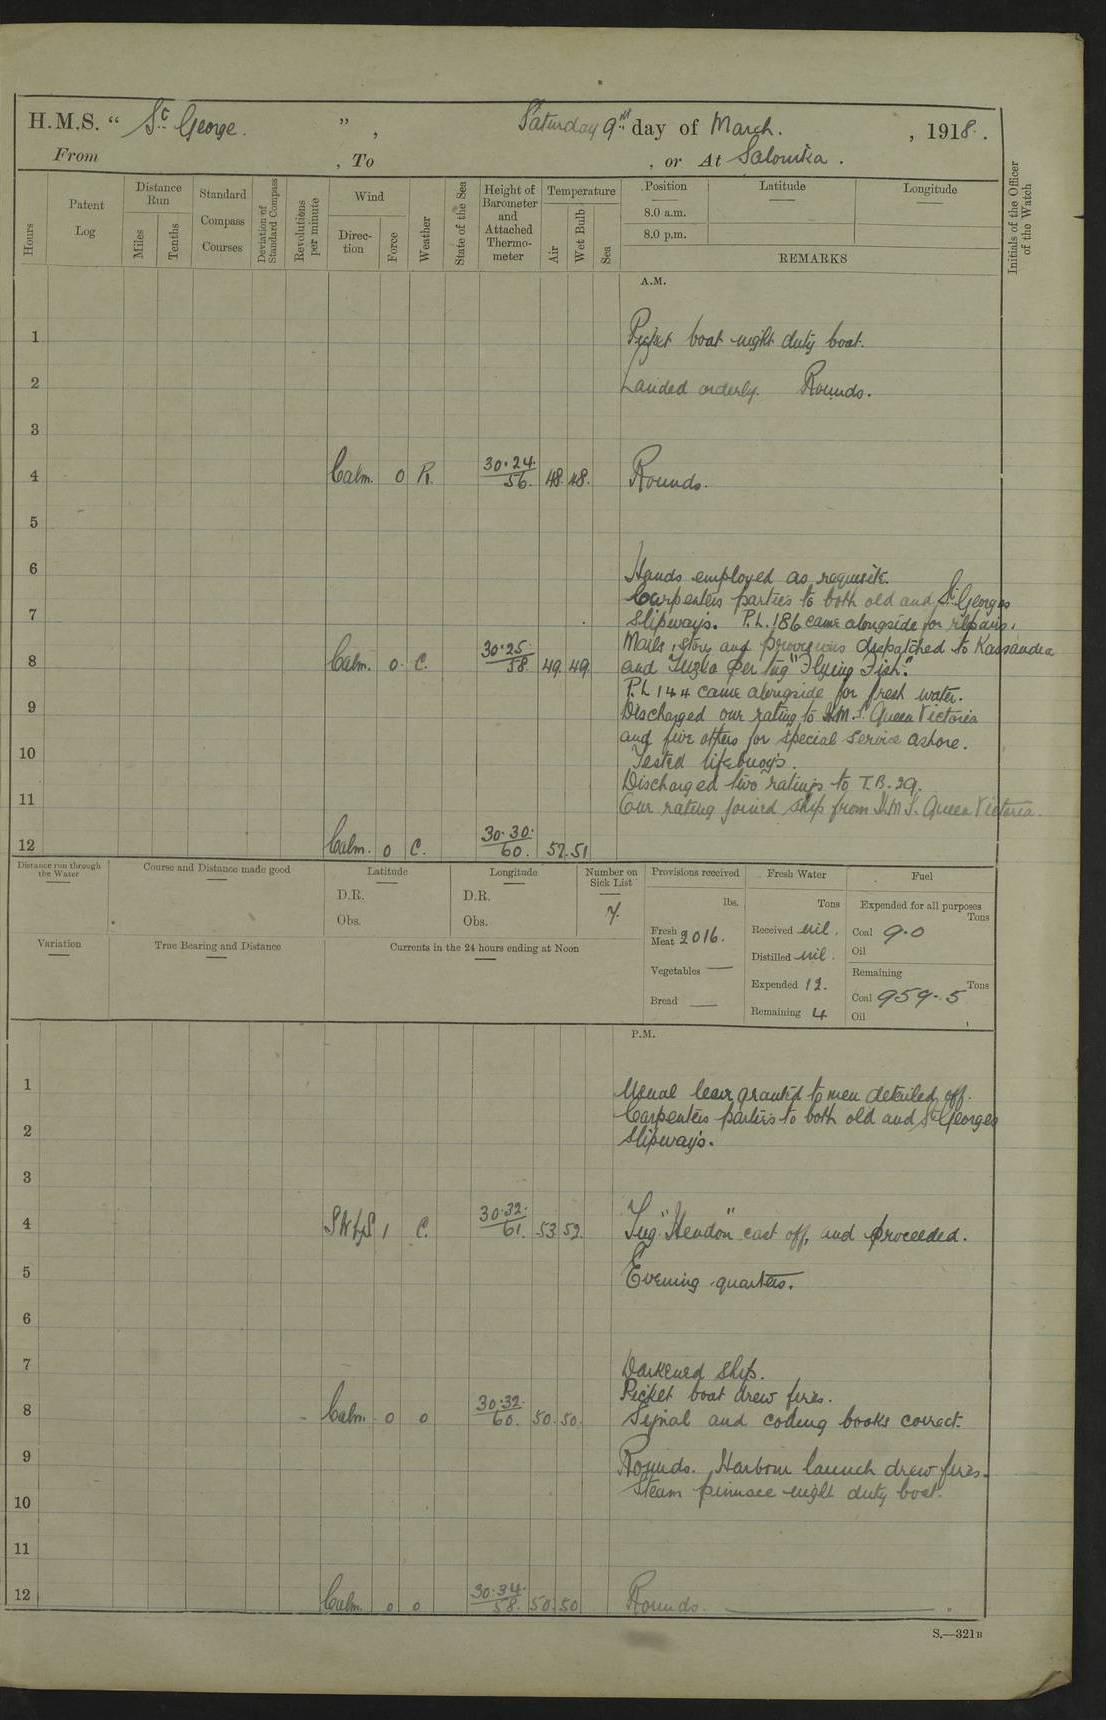 H.M.S. " St. George. ", Saturday 9th day of March. , 1918.
From , To , or At Salonika.
Hours
Patent Log
Distance Run
Miles
Tenths
Standard Compass Courses
Deviation of Standard Compass
Revolutions per minute
Wind
Direction
Force
Weather
State of the Sea
Height of Barometer and Attached Thermometer
Temperature
Air
Wet Bulb
Sea
Position
Latitude
Longitude
8.0 a.m.
8.0 p.m.
REMARKS
Initials of the Officer of the Watch
A.M.
1 Picket boat night duty boat.
2 Landed orderly. Rounds.
3
4 Calm. 0 R. 30.24. 56. 48. 48. Rounds.
5
6 Hands employed as requisite.
Carpenters parties to both old and St. Georges
7 Slipways. P.L. 186 came alongside for repairs.
Mails, and provisions despatched to Kassandra
8 Calm. 0. C. 30.25 58 49 49 and Tuzla per tug "Flying Fish".
P.L 144 came alongside for fresh water.
9 Discharged one rating to H.M.S. Queen Victoria
and five others for special service ashore.
10 Tested lifebuoys.
Discharged two ratings to T.B. 29.
11 One rating joined ship from H.M.S. Queen Victoria.
12 Calm. 0 C. 30.30. 60. 52. 51
Distance run through the Water
Course and Distance made good
Latitude
D.R.
Obs.
Longitude
D.R.
Obs.
Number on Sick List
7.
Variation
True Bearing and Distance
Currents in the 24 hours ending at Noon
Provisions received
lbs.
Fresh Meat 2016.
Vegetables —
Bread —
Fresh Water
Tons
Received nil.
Distilled nil.
Expended 12.
Remaining 4
Fuel
Expended for all purposes
Tons
Coal 9.0
Oil
Remaining
Tons
Coal 959.5
Oil
P.M.
1 Usual leave granted to men detailed off.
Carpenters parties to both old and St Georges
2 Slipways.
3
4 SWbyS 1 C. 30.32. 61. 53 52. Tug "Hendon" cast off, and proceeded.
5 Evening quarters.
6
7 Darkened ship.
Picket boat drew fires.
8 Calm. 0 0 30.32. 60. 50. 50. Signal and coding books correct.
9 Rounds. Harbour launch drew fires.
Steam pinnace night duty boat.
10
11
12 Calm. 0 0 30.34. 58. 50. 50 Rounds.
S.—321B